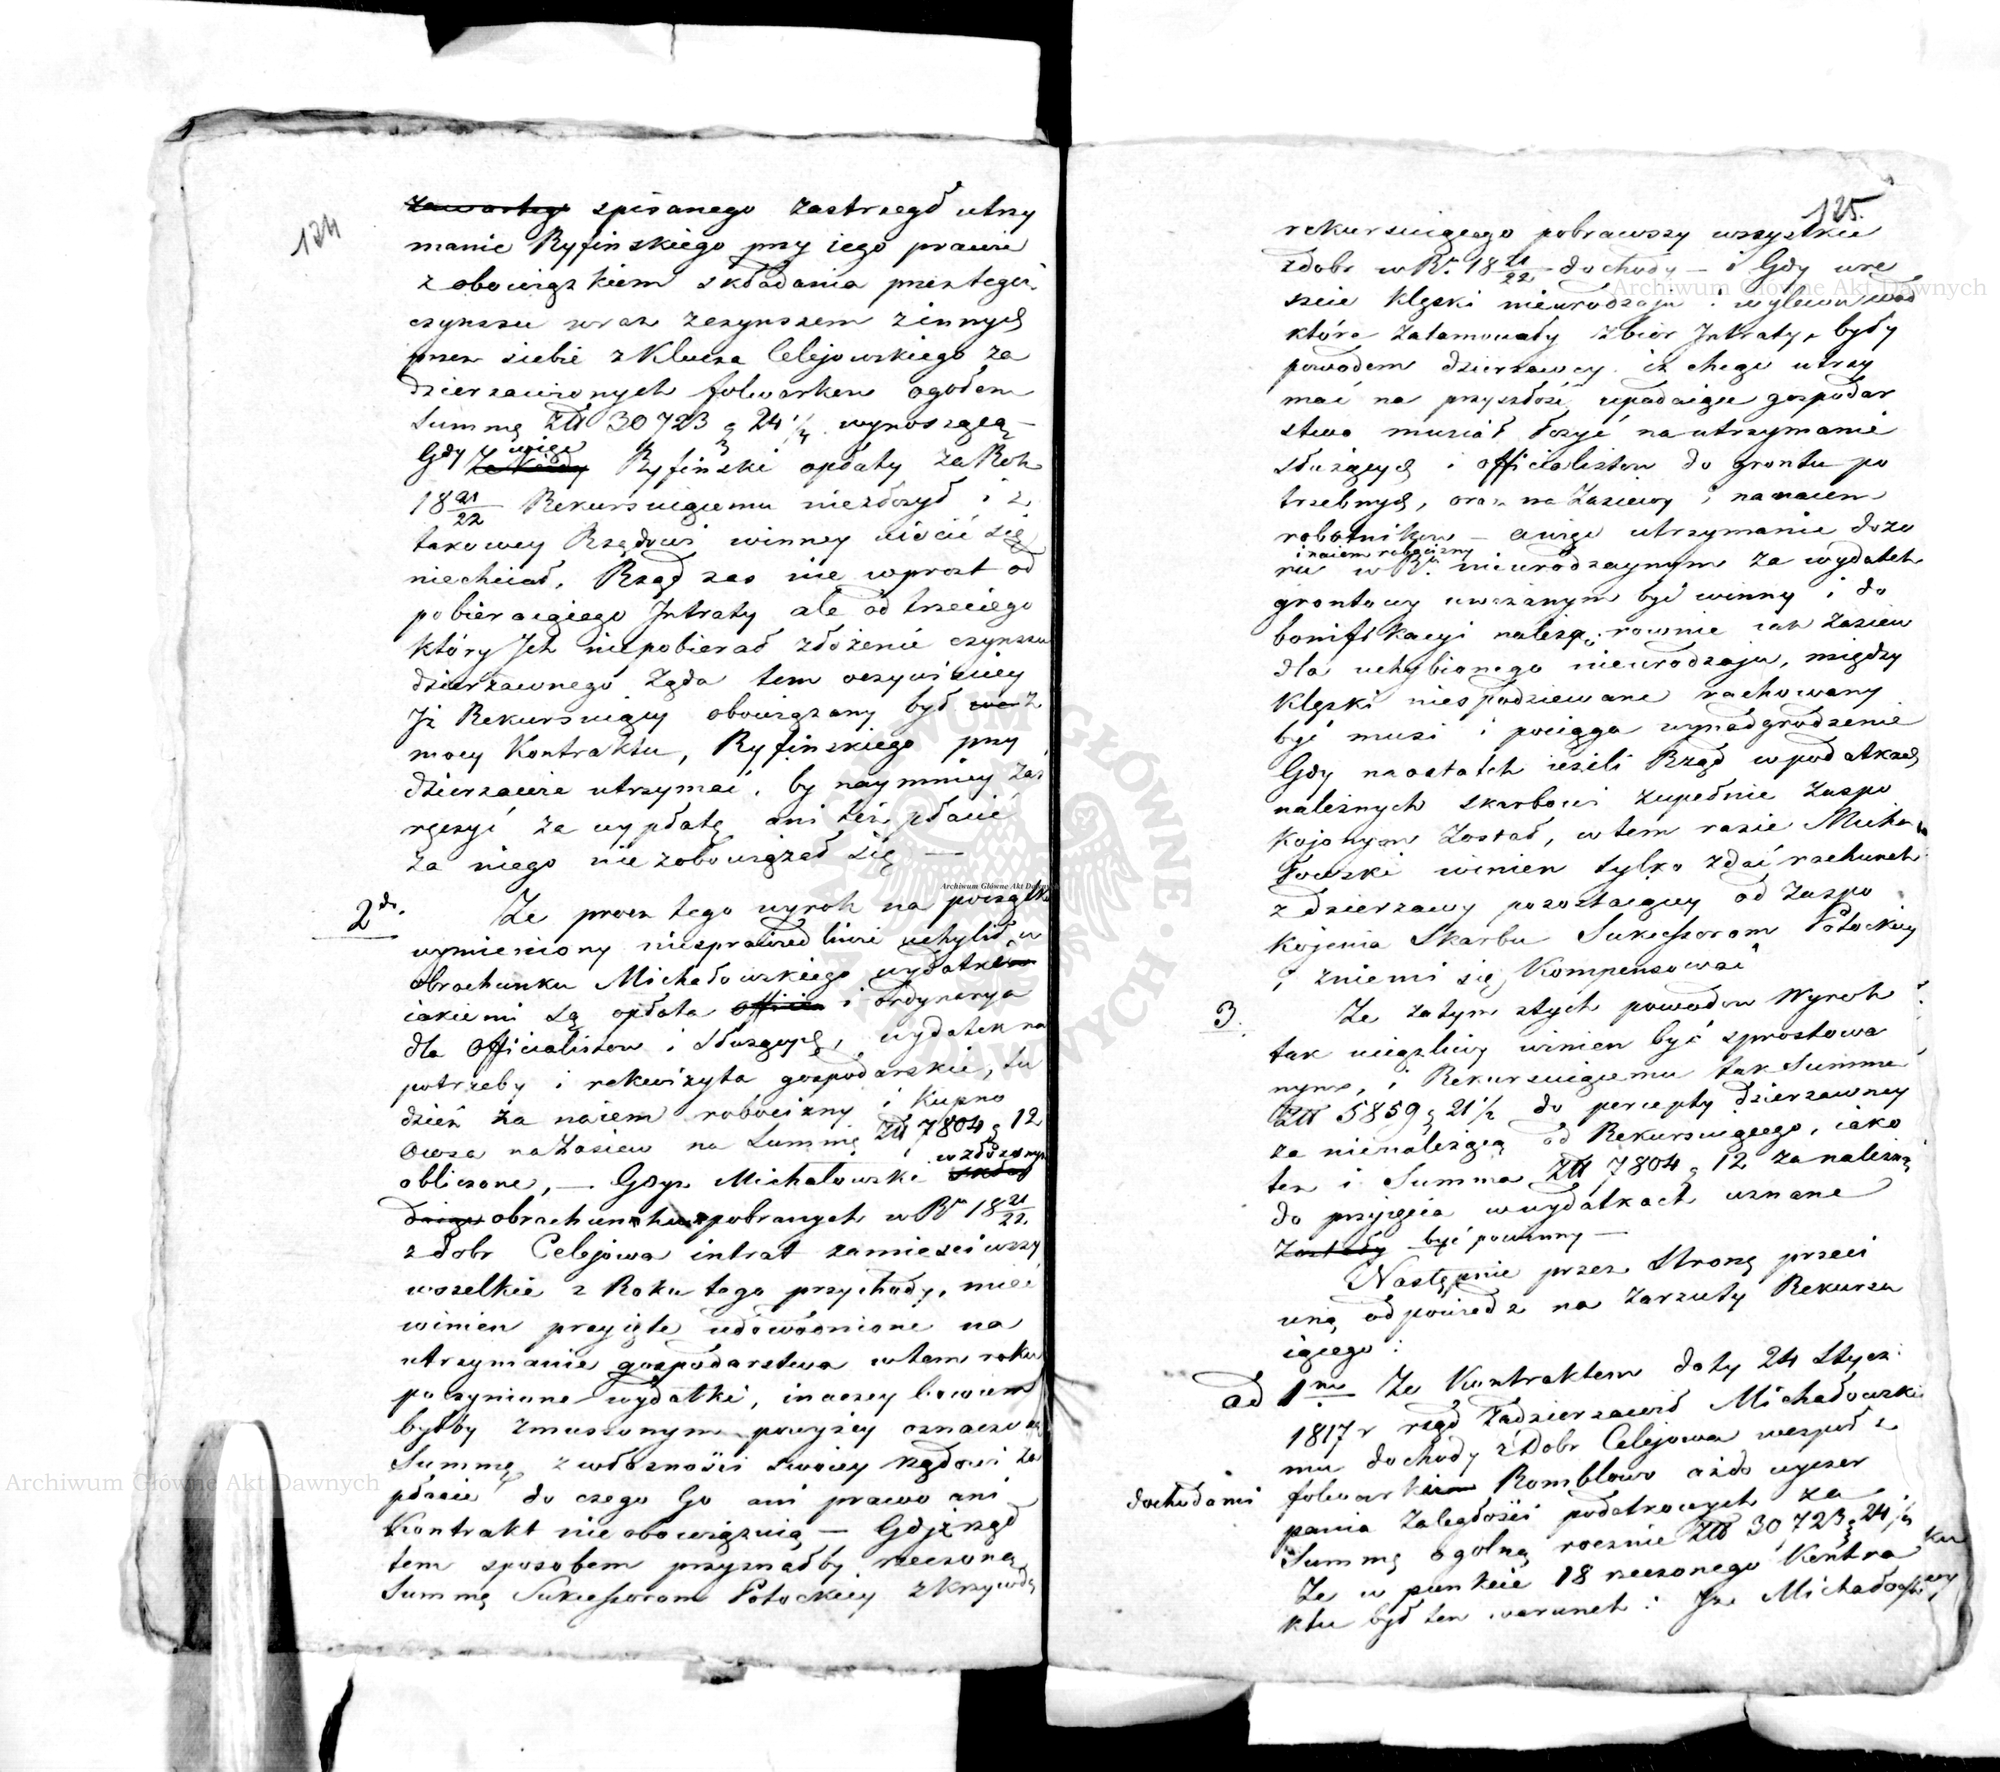 124
zawartego spisanego zastrzegł utrzy
manie Ryfińskiego przy iego prawie
z obowiązkiem składania przez tegoż
czynszu wraz z czynszem z innych
przez siebie z Klucza Celejowskiego za
dzierzawionych folwarkow ogołem
Summę Złł 30723 g 24 1/4 wynoszącą —
Gdy więc Ryfiński opłaty za Rok
18 21/22 Rekursuiącemu niezłożył i z
takowey Rządowi winney uiścić się
niechciał, Rząd zas nie wprost od
pobieraiącego Intraty ale od trzeciego
który Ich niepobierał złożenie czynszu
dzierzawnego żąda tem oczywiściey
Iż Rekursuiący obowiązany był z
mocy Kontraktu, Ryfińskiego przy
dzierzawie utrzymać, by naymniey zaś
ręczyć za wypłatę ani też płacić
za niego nie zobowiązał się —
2do. Ze przez tego wyrok na początku
wymieniony niesprawiedliwie uchylił w
obrachunku Michałowskiego wydatki
iakiemi są opłata i ordynarya
dla Officialistow i służących, wydatek na
potrzeby i rekwizyta gospodarskie, tu
dzież za naiem robocizny i kupno
Owsa na Zasiew na Summę Złł 7804 g 12
obliczone, — Gdyż Michałowski w złożonym
obrachunku pobranych w Rku 18 21/22
z dobr Celejowa intrat zamieściwszy
wszelkie z Roku tego przychody, mieć
winien przyięte udowodnione na
utrzymanie gospodarstwa w tem roku
poczynione wydatki, inaczey bowiem
byłby zmuszonym powyżey oznaczoną
Summę z własności swoiey rządowi za
płacić do czego Go ani prawo ani
Kontrakt nie obowiązuią — Gdyż rząd
tem sposobem przyznałby rzeczoną
Summę Sukcessorom Potockiey z krzywdą
125.
rekursuiącego pobrawszy wszystkie
z dobr w Rku 18 21/22 dochody — i Gdy wre
szcie klęski nieurodzaju i wylewu wod
które zatamowały zbior Intraty, były
powodem dzierzawcy iż chcąc utrzy
mać na przyszłość upadaiące gospodar
stwo musiał łożyć na utrzymanie
służących i officialistow do gruntu po
trzebnych, oraz na Zasiewy i na naiem
robotnikow — a więc utrzymanie dozo
i naiem robocizny
ru w Rku nieurodzaynym za wydatek
gruntowy uważanym być winny i do
bonifikacyi należą, rownie iak Zasiew
dla uchybionego nieurodzaju, między
klęski niespodziewane rachowany
być musi i pociąga wynadgrodzenie
Gdy naostatek ieżeli Rząd w podatkach
należnych skarbowi zupełnie zaspo
kojonym został, w tem razie Micha
łowski winien tylko zdać rachunek
z dzierzawy pozostaiącey od zaspo
kojenia Skarbu Sukcessorom Potockiey
i z niemi się Kompensować
3. Ze zatym z tych powodow Wyrok
tak uciążliwy winien być sprostowa
nym, i Rekursuiącemu tak Summa
Złł 5859 g 21 1/2 do percepty dzierzawney
za nienależącą od Rekursuiącego, iako
też i Summa Złł 7804 g 12 za należną
do przyięcia w wydatkach uznane
być powinny —
Następnie przez Stronę przeci
wną odpowiedz na zarzuty Rekursu
iącego:
ad 1mum Ze Kontraktem daty 24 Stycz:
1817 r rząd zadzierzawił Michałowskie
mu dochody z Dobr Celejowa wespoł z
dochodami folwarku Romblowo aż do wyczer
pania zaległości podatkowych za
Summę ogolną rocznie Złł 30,723 g 24 1/4
Ze w punkcie 18 rzeczonego Kontra
ktu był ten warunek: Iże Michałowski